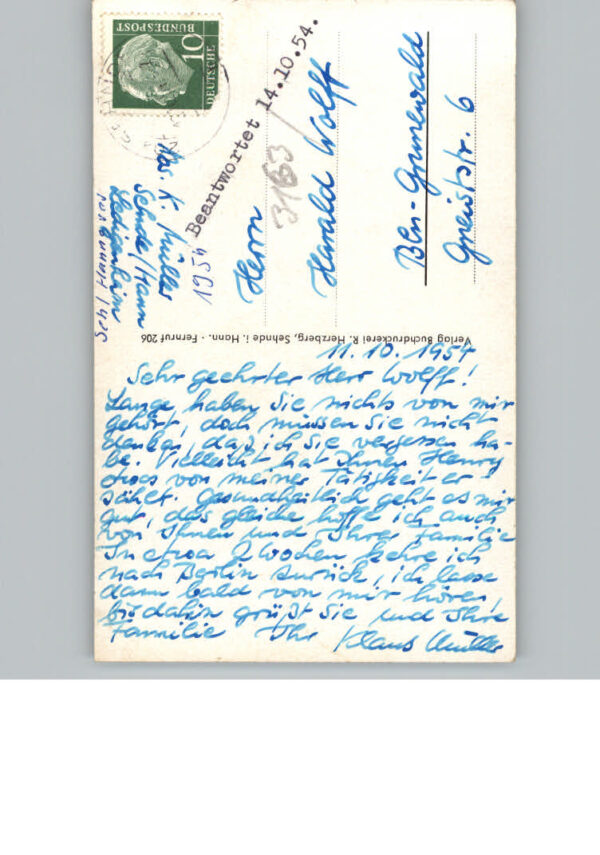 DEUTSCHE
BUNDESPOST
10
Beantwortet 14.10.54.
3163
Abs. K. Müller
Sehnde/Hann
Ledigenheim
1954
Herrn
Harald Wolff
Bln-Grunewald
Gneiststr. 6
Verlag Buchdruckerei R. Herzberg, Sehnde i. Hann. - Fernruf 206
11.10.1954
Sehr geehrter Herr Wolff!
Lange haben Sie nichts von mir
gehört, doch müssen Sie nicht
denken, daß ich Sie vergessen ha-
be. Vielleicht hat Ihnen Henry
etwas von meiner Tätigkeit er-
zählt. Gesundheitlich geht es mir
gut, das gleiche hoffe ich auch
von Ihnen und Ihrer Familie
In etwa 2 Wochen kehre ich
nach Berlin zurück, ich lasse
dann bald von mir hören,
bis dahin grüßt Sie und Ihre
Familie Ihr Klaus Müller